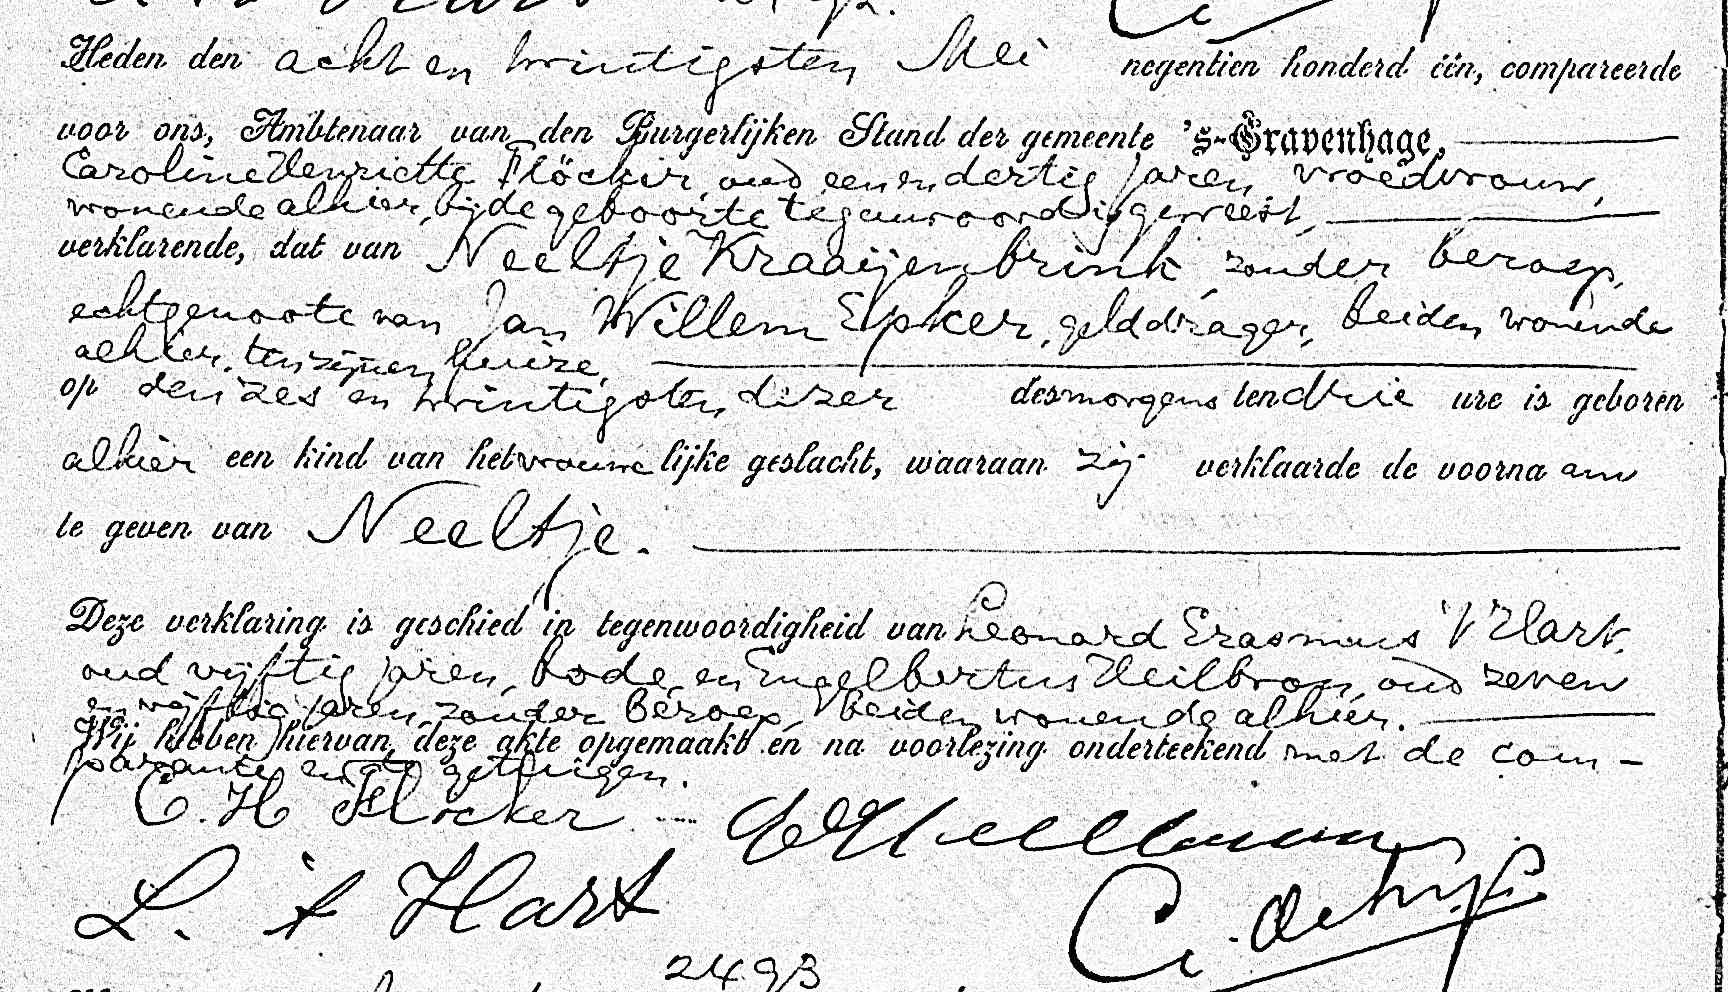 Heden den acht en twintigsten Mei negentien honderd één, compareerde
voor ons, Ambtenaar van den Burgerlijken Stand der gemeente 's-Gravenhage,
Caroline Henriette Flöcker, oud een en dertig jaren, vroedvrouw,
wonende alhier, bij de geboorte tegenwoordig geweest,
verklarende, dat van Neeltje Kraaijenbrink, zonder beroep,
echtgenoote van Jan Willem Epker, gelddrager, beiden wonende
alhier, ten zijnen huize,
op den zes en twintigsten dezer des morgens ten drie ure is geboren
alhier een kind van het vrouwelijke geslacht, waaraan zij verklaarde de voornaam
te geven van Neeltje.
Deze verklaring is geschied in tegenwoordigheid van Leonard Erasmus 't Hart,
oud vijftig jaren, bode, en Engelbertus Heilbron, oud zeven
en vijftig jaren, zonder beroep, beiden wonende alhier.
Wij hebben hiervan deze akte opgemaakt en na voorlezing onderteekend met de com-
parante en de getuigen.
C. H. Flöcker
L. 't Hart
2493